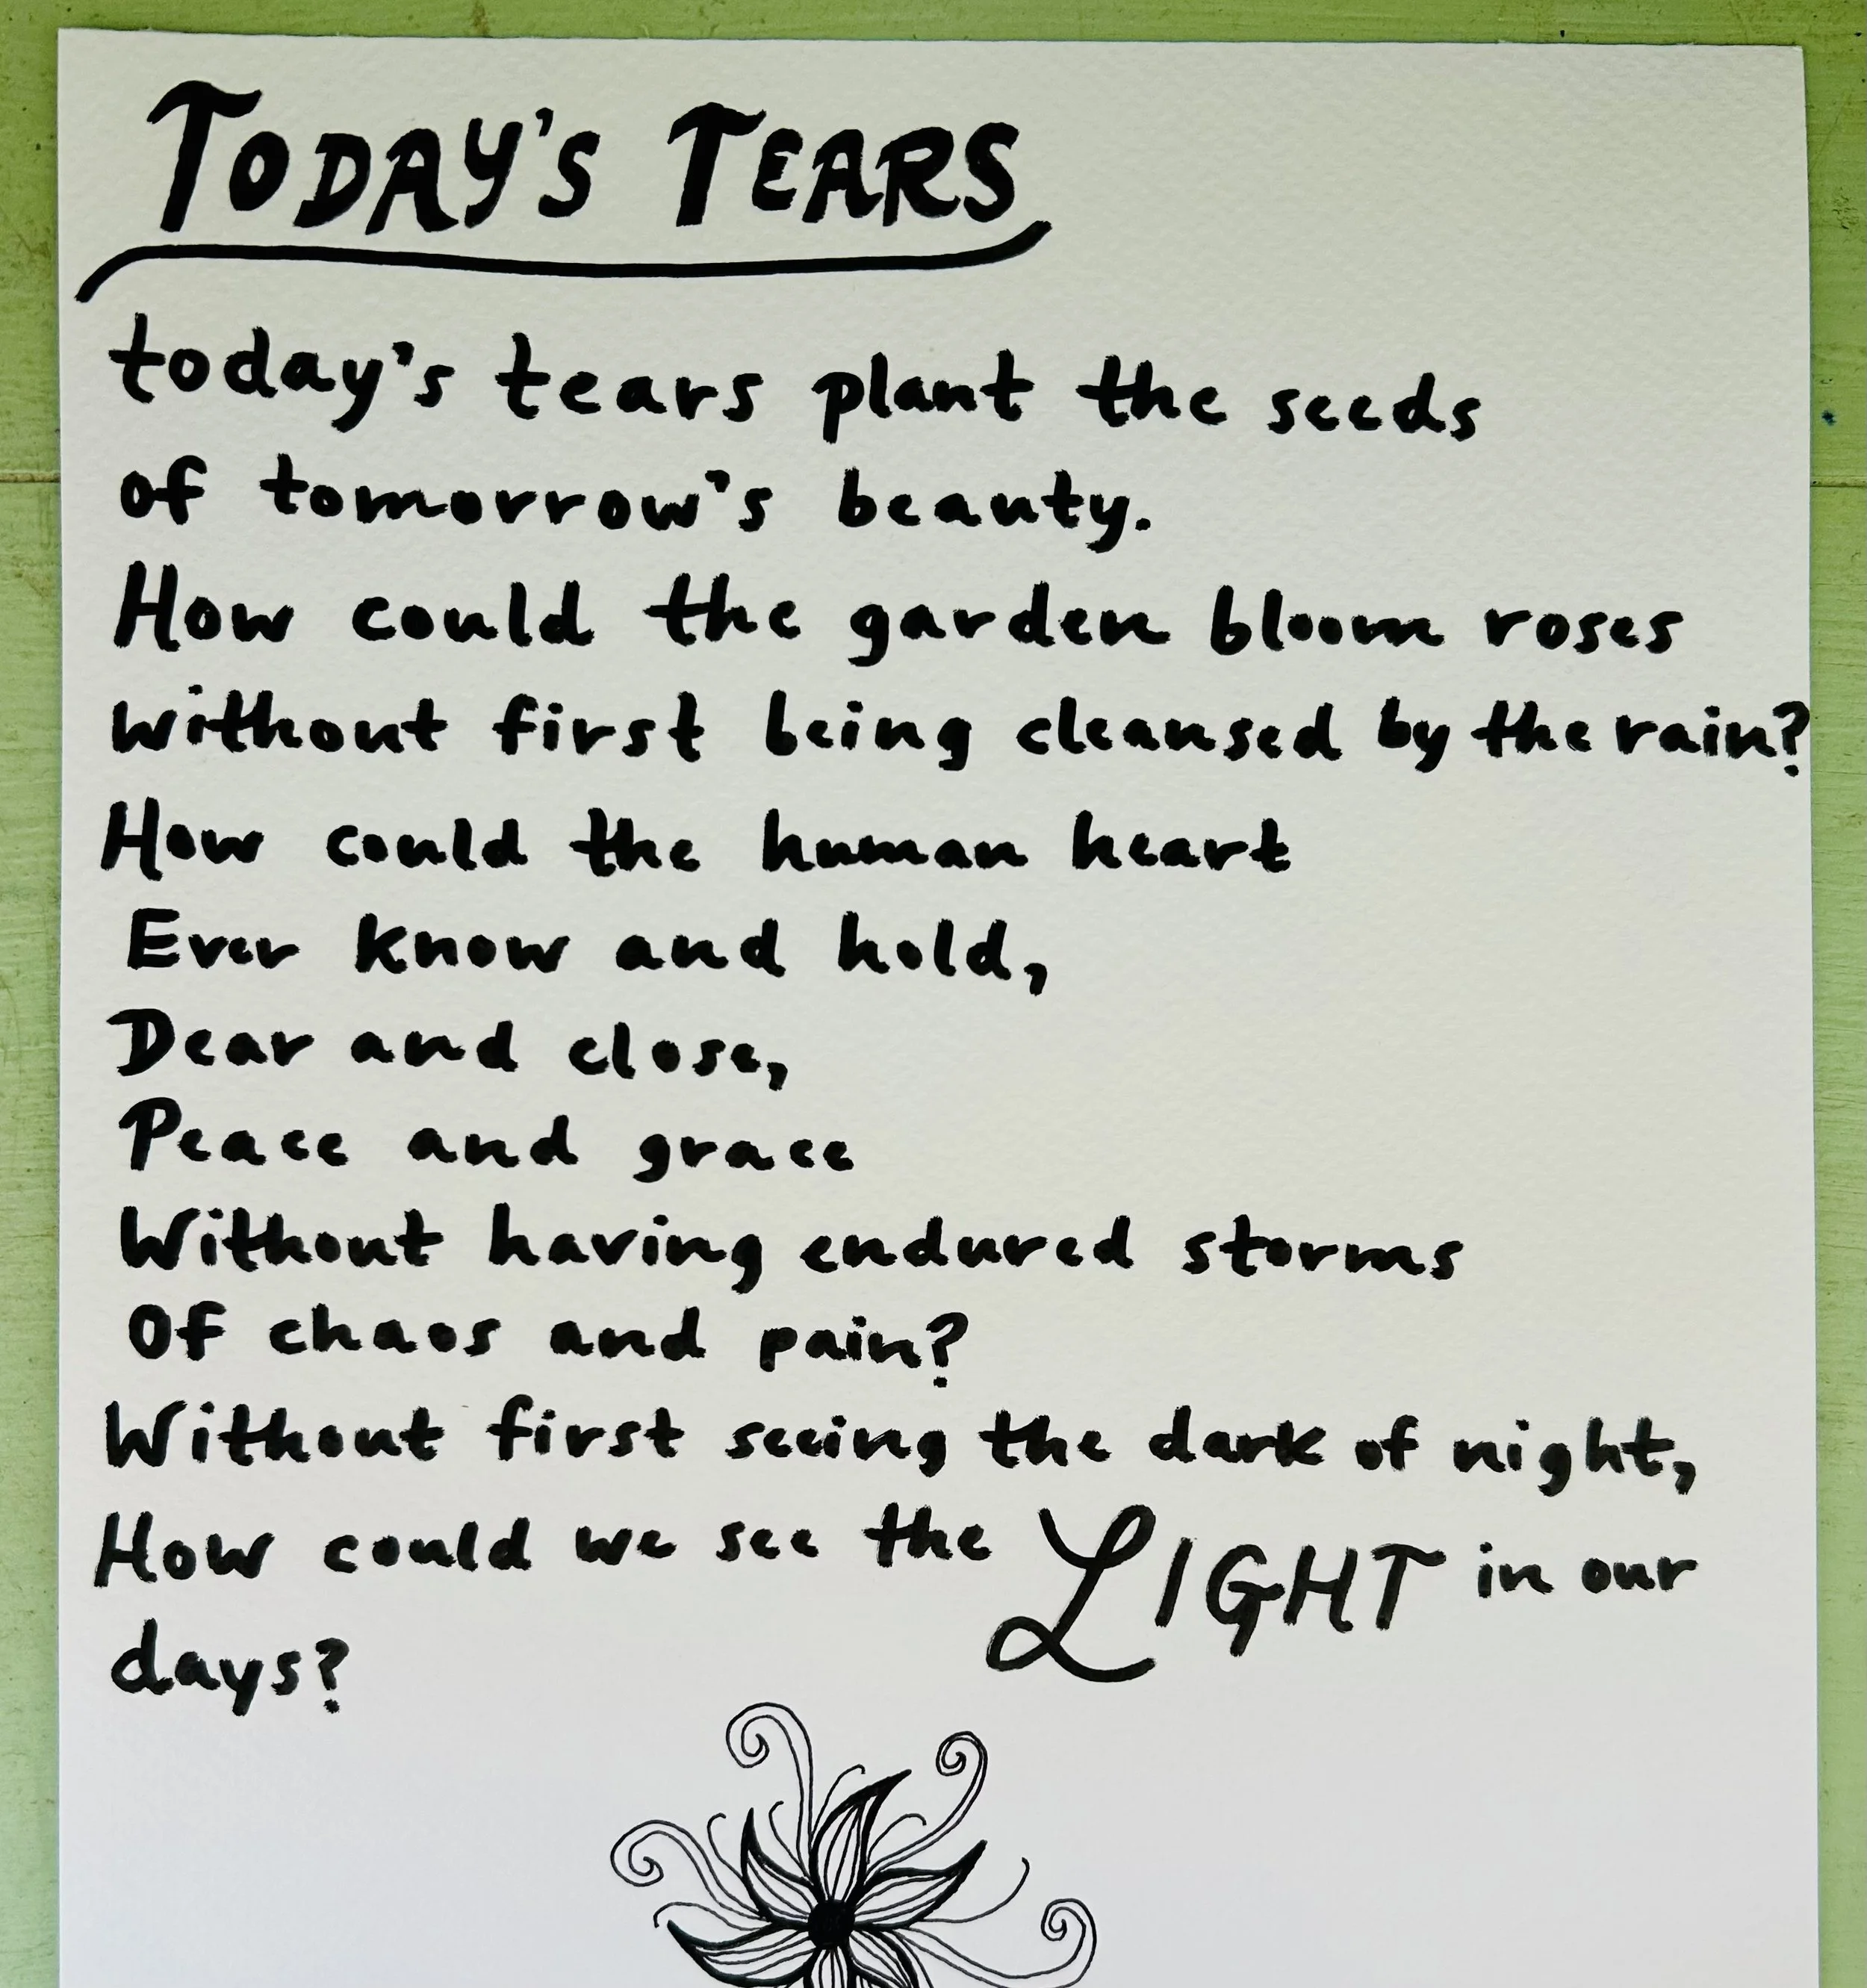 TODAY'S TEARS
today's tears plant the seeds
of tomorrow's beauty.
How could the garden bloom roses
without first being cleansed by the rain?
How could the human heart
Ever know and hold,
Dear and close,
Peace and grace
Without having endured storms
Of chaos and pain?
Without first seeing the dark of night,
How could we see the LIGHT in our
days?